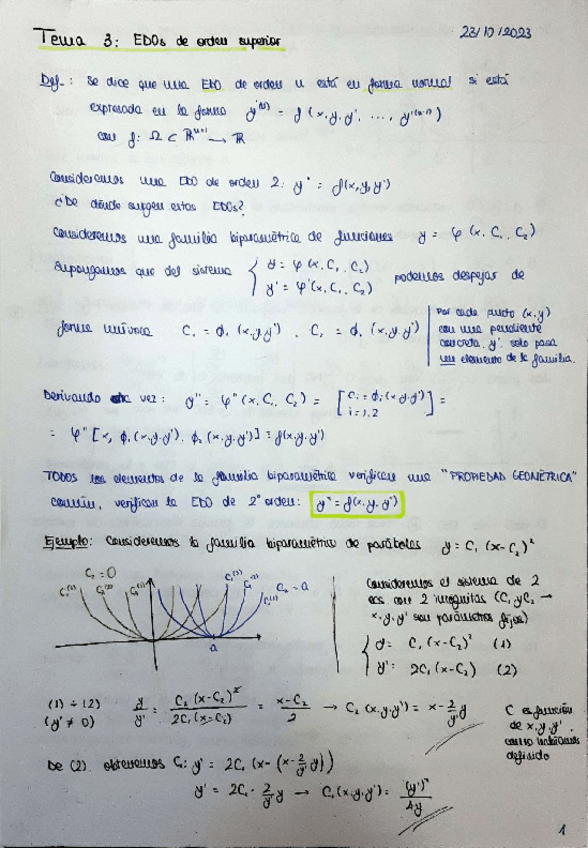 Tema 3: EDOs de orden superior
23/10/2023
Def.: Se dice que una EDO de orden n está en forma normal si está
expresada en la forma y⁽ⁿ⁾ = f(x, y, y', ..., y⁽ⁿ⁻¹⁾)
con f: Ω ⊂ ℝⁿ⁺¹ → ℝ
Consideremos una EDO de orden 2: y'' = f(x, y, y')
¿De dónde surgen estas EDOs?
Consideremos una familia biparamétrica de funciones y = φ(x, C₁, C₂)
Supongamos que del sistema { y = φ(x, C₁, C₂)
y' = φ'(x, C₁, C₂) podemos despejar de
forma unívoca C₁ = ϕ₁(x, y, y'), C₂ = ϕ₂(x, y, y')
Por cada punto (x, y)
con una pendiente
concreta y' solo pasa
un elemento de la familia.
Derivando otra vez: y'' = φ''(x, C₁, C₂) = [Cᵢ = ϕᵢ(x, y, y')
i = 1, 2] =
= φ''[x, ϕ₁(x, y, y'), ϕ₂(x, y, y')] = f(x, y, y')
TODOS los elementos de la familia biparamétrica verifican una "PROPIEDAD GEOMÉTRICA"
común, verifican la EDO de 2º orden: y'' = f(x, y, y')
Ejemplo: Consideremos la familia biparamétrica de parábolas y = C₁(x-C₂)²
C₂ = 0
C₂ = a
a
Consideremos el sistema de 2
ecs. con 2 incógnitas (C₁ y C₂ →
x, y, y' son parámetros fijos)
{ y = C₁(x-C₂)² (1)
y' = 2C₁(x-C₂) (2)
(1) ÷ (2) y/y' = C₁(x-C₂)²/2C₁(x-C₂) = x-C₂/2 → C₂(x, y, y') = x - 2/y' y
(y' ≠ 0)
C es función
de x, y, y'
como habíamos
definido
De (2) obtenemos C₁: y' = 2C₁(x-(x-2/y' y))
y' = 2C₁ · 2/y' y → C₁(x, y, y') = (y')²/4y
1